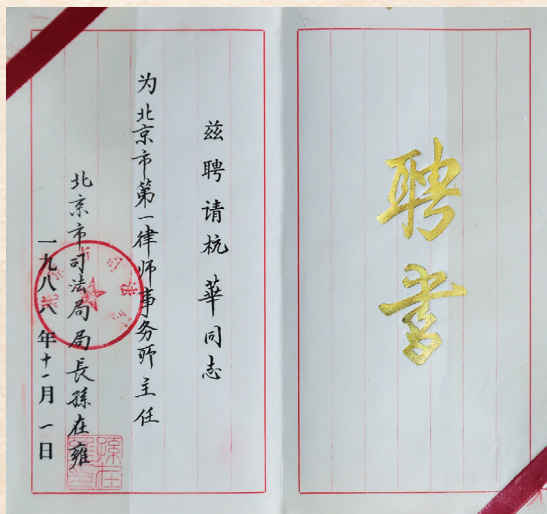 聘书
兹聘请杭華同志
为北京市第一律师事务所主任
北京市司法局局長孫在雍
一九八八年十一月一日